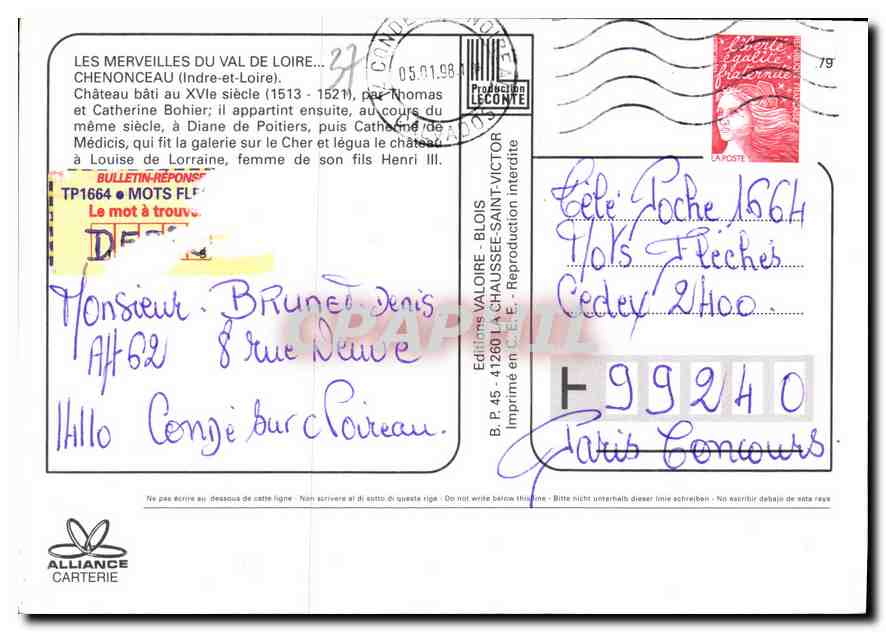 LES MERVEILLES DU VAL DE LOIRE...
CHENONCEAU (Indre-et-Loire).
Château bâti au XVIe siècle (1513 - 1521), par Thomas
et Catherine Bohier; il appartint ensuite, au cours du
même siècle, à Diane de Poitiers, puis Catherine de
Médicis, qui fit la galerie sur le Cher et légua le château
à Louise de Lorraine, femme de son fils Henri III.
37
CONDE NOIREAU
05.01.98
CALVADOS
Production
LECONTE
liberté
égalité
fraternité
LA POSTE
79
BULLETIN-RÉPONSE
TP1664 • MOTS FLE
Le mot à trouve
Monsieur. BRUNET. Denis
AH62 8 rue Neuve
14110 Condé sur Noireau.
Editions VALOIRE - BLOIS
B. P. 45 - 41260 LA CHAUSSEE-SAINT-VICTOR
Imprimé en C. E. E. - Reproduction interdite
Télé Poche 1664
Mots Fléchés
Cédex 2400.
99240
Paris Concours.
CPAPHIL
Ne pas écrire au dessous de cette ligne - Non scrivere al di sotto di questa riga - Do not write below this line - Bitte nicht unterhalb dieser linie schreiben - No escribir debajo de esta raya
ALLIANCE
CARTERIE